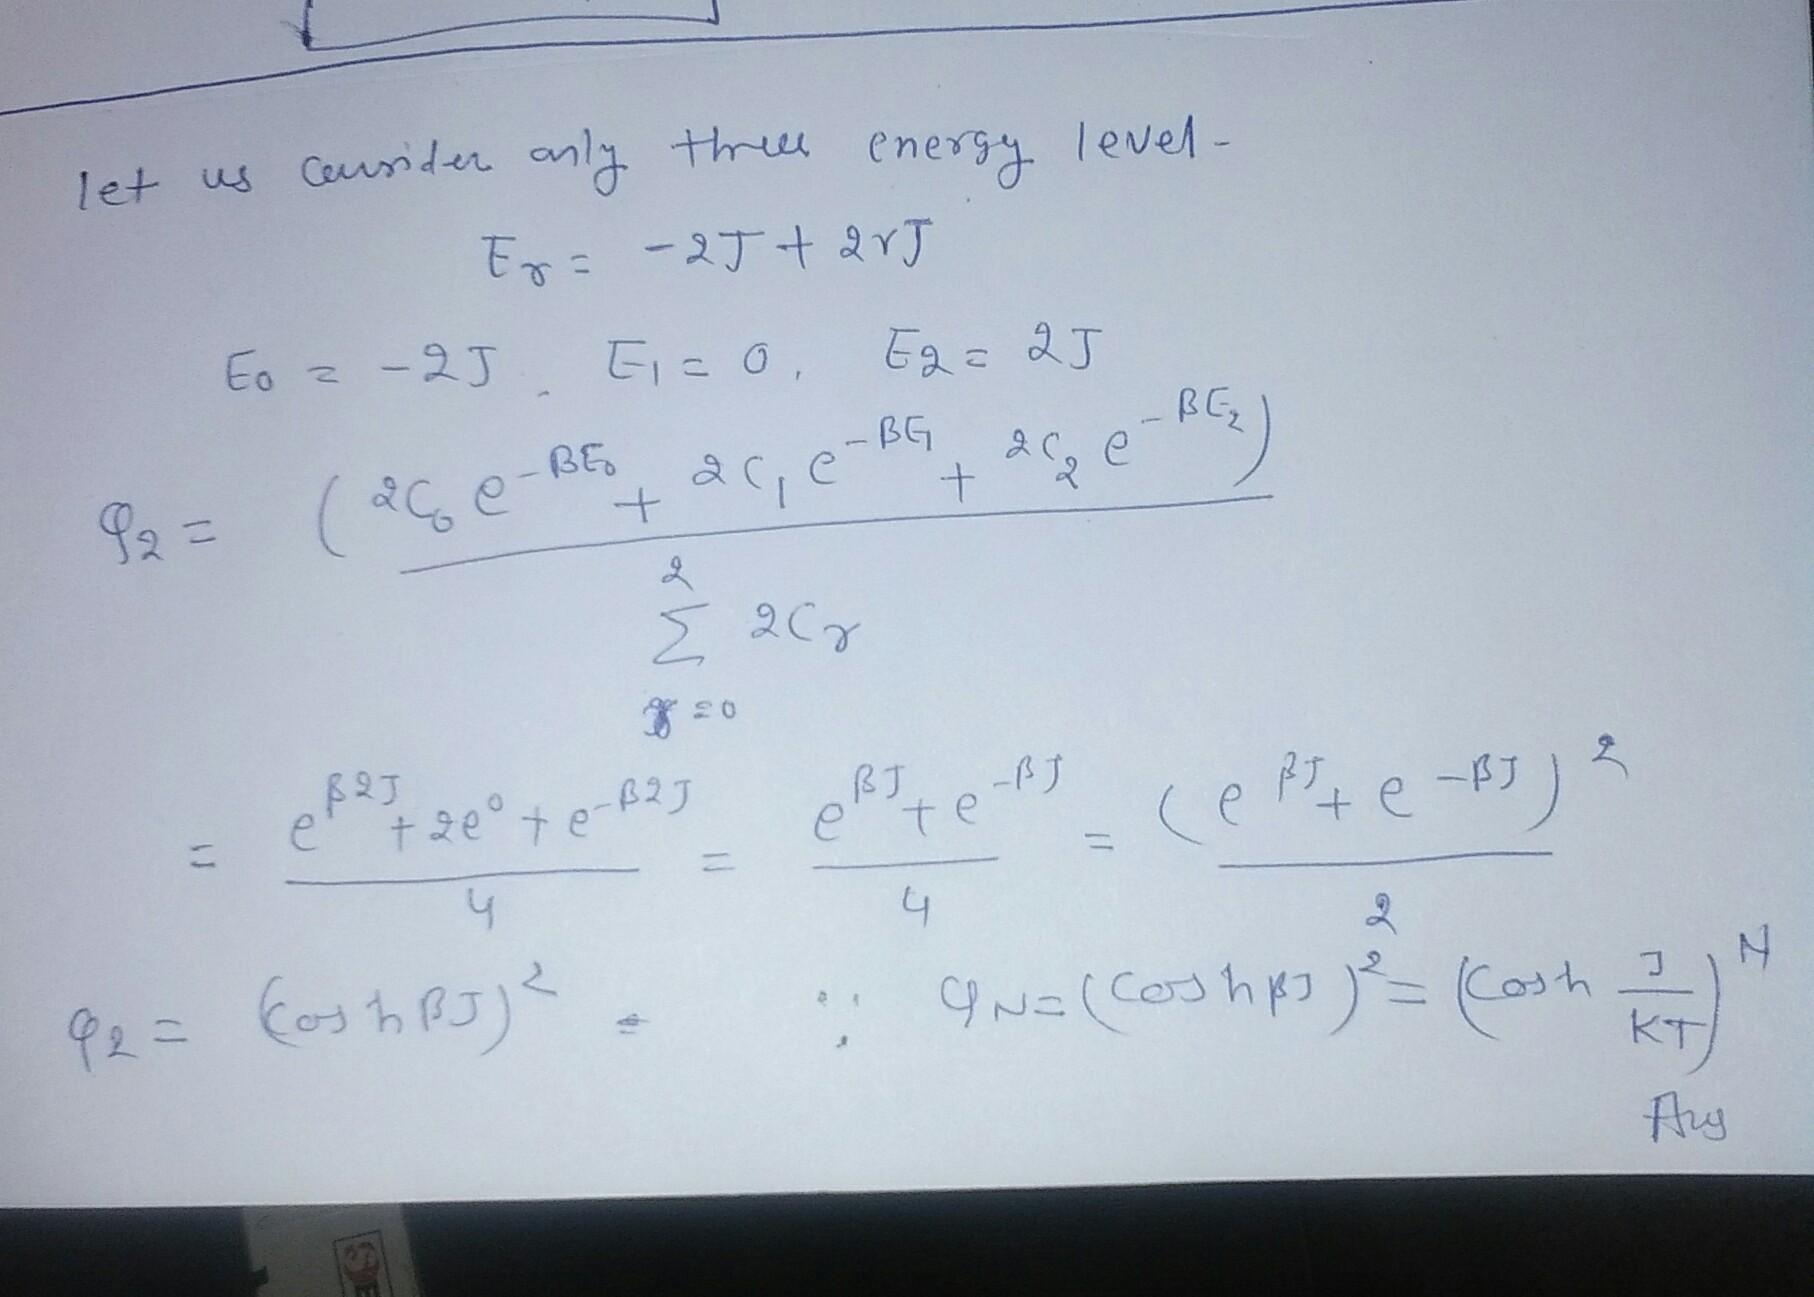 let us consider only three energy level -
Er = -2J + 2rJ
E0 = -2J, E1 = 0, E2 = 2J
φ2 = (2C0 e^-βE0 + 2C1 e^-βE1 + 2C2 e^-βE2)
2
Σ 2Cr
r=0
= e^β2J + 2e^0 + e^-β2J / 4 = e^βJ + e^-βJ / 4 = (e^βJ + e^-βJ)^2 / 2
φ2 = (Cosh βJ)^2 . ∵ φN = (Cosh βJ)^2 = (Cosh J/KT)^N
Ans